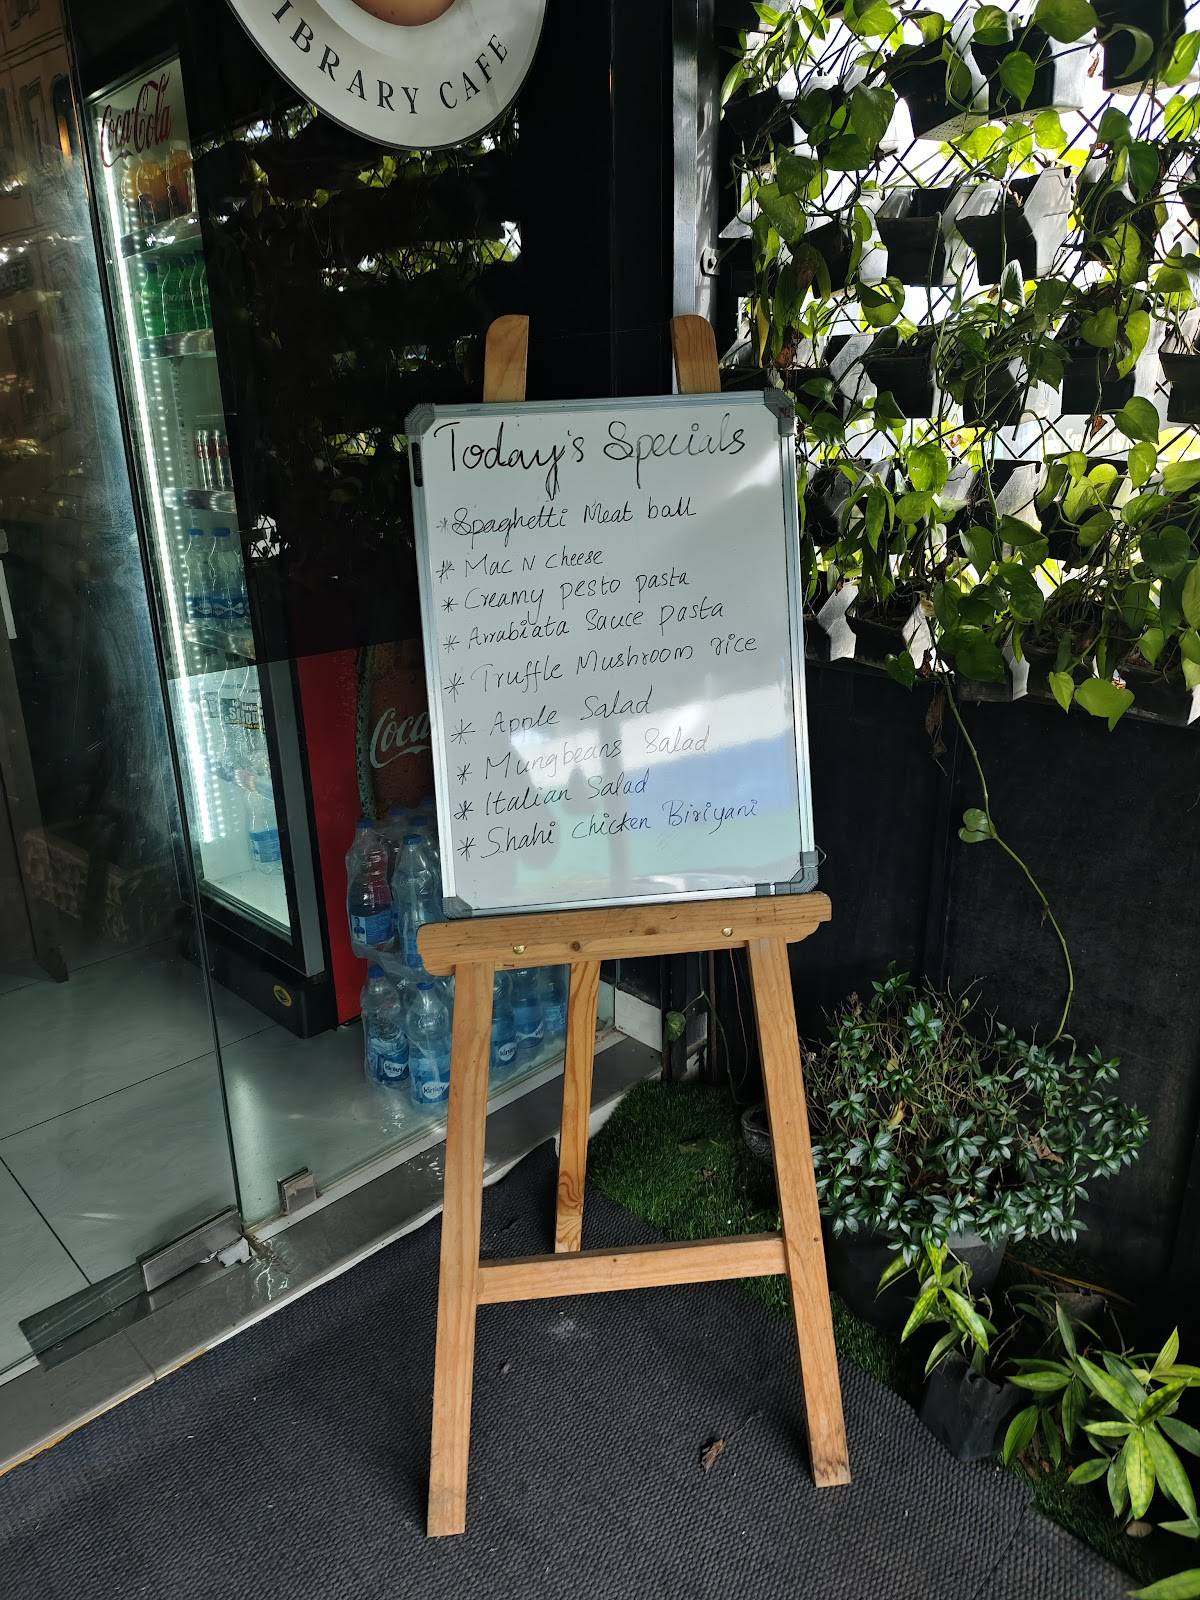 IBRARY CAFE
Coca-Cola
Today's Specials
* Spaghetti Meat ball
* Mac N cheese
* Creamy pesto pasta
* Arrabiata Sauce pasta
* Truffle Mushroom rice
* Apple Salad
* Mungbeans Salad
* Italian Salad
* Shahi chicken Biriyani
Coca
Kinley
Kinley